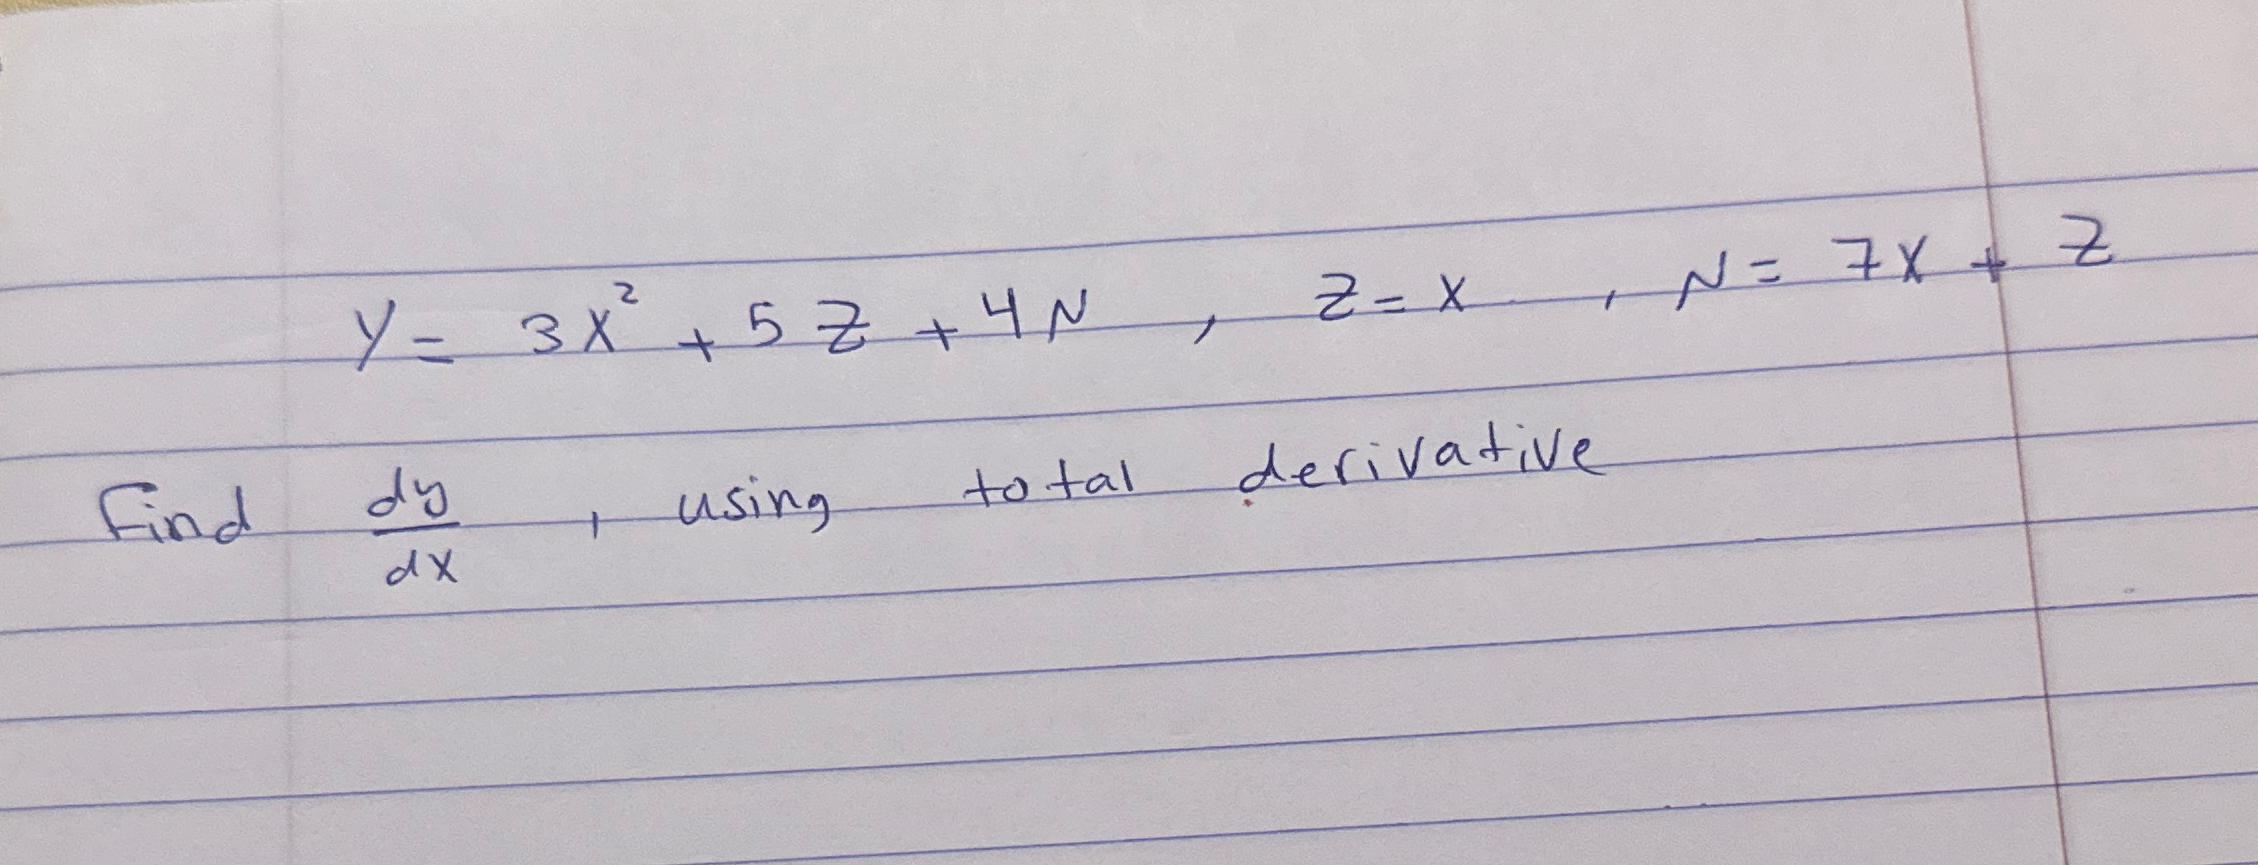 Y = 3X² + 5Z + 4N , Z = X , N = 7X + Z
Find dy/dx , using total derivative